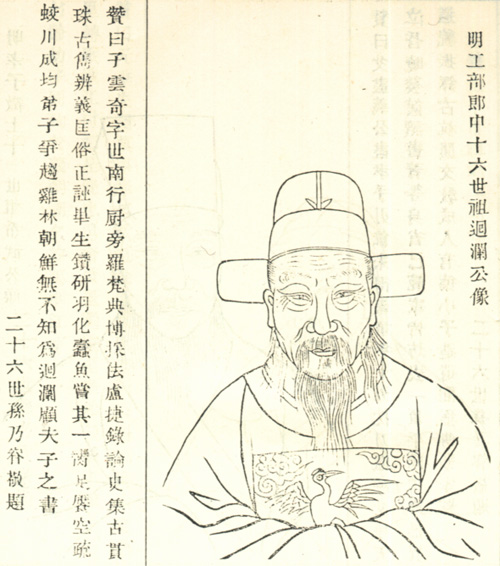 明工部郎中十六世祖迴瀾公像
贊曰子雲奇字世南行厨旁羅梵典博採佉盧捷錄論史集古貫
珠古雋辨義匡俗正誣畢生鑽研羽化蠹魚嘗其一臠足饜空疏
蛟川成均弟子爭趨雞林朝鮮無不知爲迴瀾顧夫子之書
二十六世孫乃眷敬題